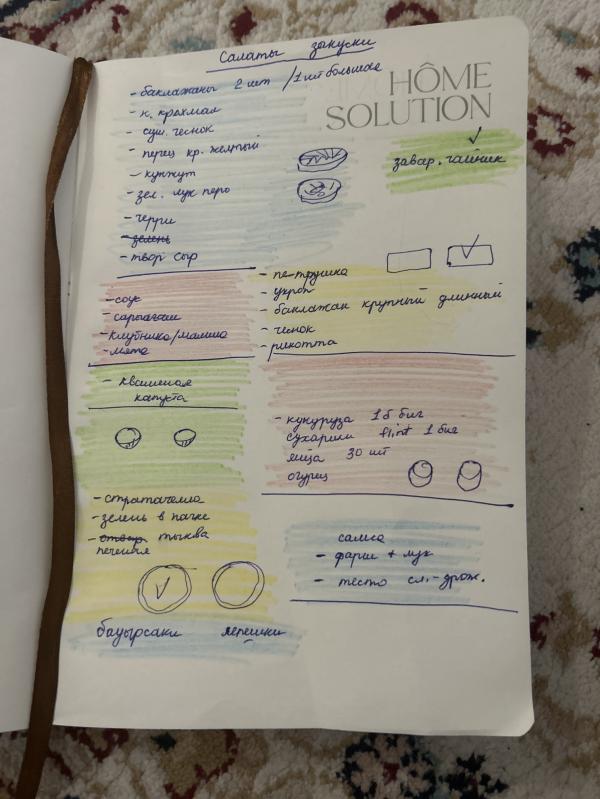 Салаты закуски
HÔME
SOLUTION
- баклажаны 2 шт /1 шт большое
- к. крахмал
- суш. чеснок
- перец кр. желтый
- кунжут
- зел. лук перо
- черри
- зелень
- твор сыр
завар. чайник
- соус
- сарыағаш
- клубника/малина
- мята
- петрушка
- укроп
- баклажан крупный длинный
- чеснок
- рикотта
- квашеная
капуста
- кукуруза 1 б биг
сухарики flint 1 биг
яйца 30 шт
огурец
- страчателла
- зелень в пачке
- отвар тыква
печеная
самса
- фарш + лук
- тесто сл.-дрож.
бауырсаки лепешки